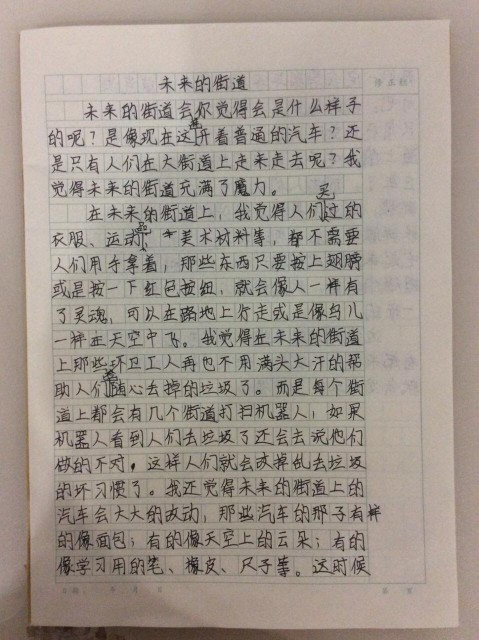 未来的街道
未来的街道会你觉得会是什么样子
的呢？是像现在这样开着普通的汽车？还
是只有人们在大街道上走来走去呢？我
觉得未来的街道充满了魔力。
在未来的街道上，我觉得人们
衣服、运动 美术材料等，都不需要
人们用手拿着，那些东西只要按上翅膀
或是按一下红色按钮，就会像人一样有
了灵魂，可以在路地上行走或是像鸟儿
一样在天空中飞。我觉得在未来的街道
上那些环卫工人再也不用满头大汗的帮
助人们随心去掉的垃圾了。而是每个街
道上都会有几个街道打扫机器人，如果
机器人看到人们去垃圾了还会去说他们
做的不对，这样人们就会改掉乱去垃圾
的坏习惯了。我还觉得未来的街道上的
汽车会大大的改动，那些汽车的那子有样
的像面包；有的像天空上的云朵；有的
像学习用的笔、橡皮、尺子等。这时候